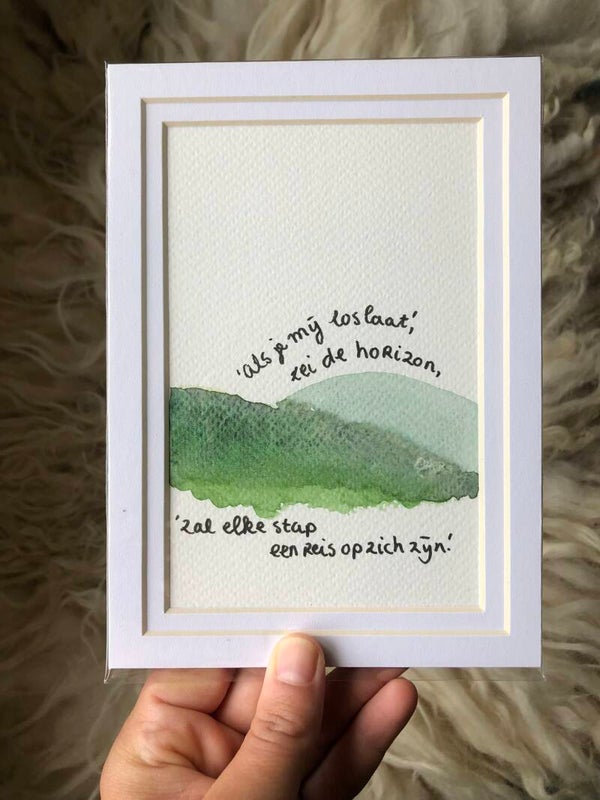 'als je mij loslaat',
zei de horizon,
'zal elke stap
een reis op zich zijn.'